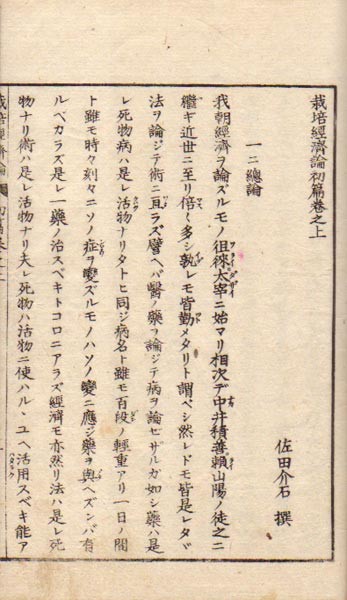 栽培經濟論初篇卷之上
佐田介石 撰
一ニ總論
我朝經濟ヲ論ズルモノ徂徠太宰ニ始マリ相次デ中井積善賴山陽ノ徒之ニ
繼ギ近世ニ至リ倍〻多シ孰レモ皆勤メタリト謂ベシ然レドモ皆是レタヾ
法ヲ論ジテ術ニ亘ラズ譬ヘバ醫ノ藥ヲ論ジテ病ヲ論ゼザルガ如シ藥ハ是
レ死物病ハ是レ活物ナリタトヒ同ジ病名ト雖モ百段ノ輕重アリ一日ノ間
ト雖モ時々刻々ニソノ症ヲ變ズルモノハソノ變ニ應ジ藥ヲ與ヘズンバ有
ルベカラズ是レ一藥ノ治スベキトコロニアラズ經濟モ亦然リ法ハ是レ死
物ナリ術ハ是レ活物ナリ夫レ死物ハ活物ニ使ハルヽユヘ活用スベキ能ア
栽培經濟論 初篇卷之上